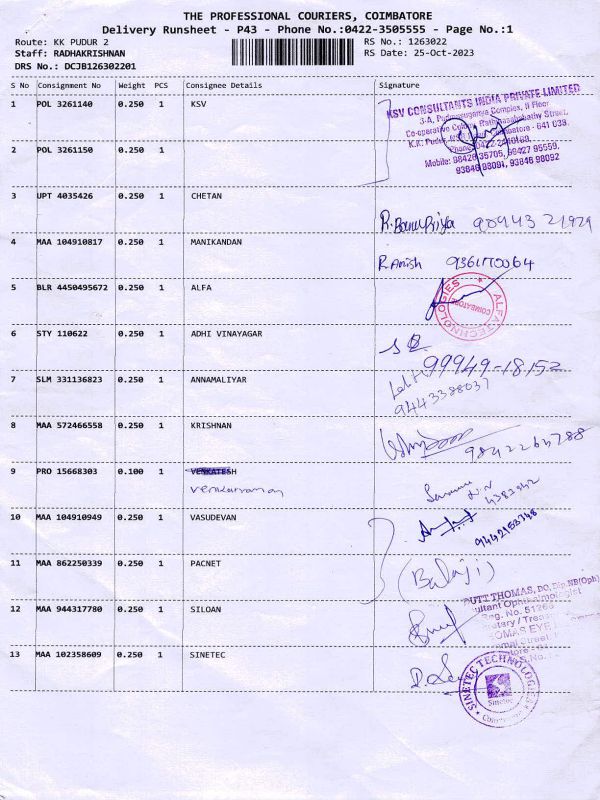 THE PROFESSIONAL COURIERS, COIMBATORE
Delivery Runsheet - P43 - Phone No.:0422-3505555 - Page No.:1
Route: KK PUDUR 2 RS No.: 1263022
Staff: RADHAKRISHNAN RS Date: 25-Oct-2023
DRS No.: DCJB126302201
S No Consignment No Weight PCS Consignee Details Signature
1 POL 3261140 0.250 1 KSV
KSV CONSULTANTS INDIA PRIVATE LIMITED
Complex, II Floor
Co-operative
K.K. Pudur, 641 038.
Phone: 0422-
Mobile: 98426 35705, 98427 95559,
93846 98091, 93846 98092
2 POL 3261150 0.250 1
3 UPT 4035426 0.250 1 CHETAN
R. 90943 21929
4 MAA 104910817 0.250 1 MANIKANDAN
R. Anish 9361770064
5 BLR 4450495672 0.250 1 ALFA
ALFA TECHNOLOGIES
COIMBATORE
6 STY 110622 0.250 1 ADHI VINAYAGAR
99949-18152
7 SLM 331136823 0.250 1 ANNAMALIYAR
9443388037
8 MAA 572466558 0.250 1 KRISHNAN
9842264788
9 PRO 15668303 0.100 1 VENKATESH
Venkatraman
10 MAA 104910949 0.250 1 VASUDEVAN
9442153748
11 MAA 862250339 0.250 1 PACNET
(Balaji)
DUTT THOMAS, DO, Dip.NB(Oph)
sultant Ophthalmologist
Reg. No. 51266
etary / Treas
HOMAS EYE
12 MAA 944317780 0.250 1 SILOAN
13 MAA 102358609 0.250 1 SINETEC
SINETEC TECHNOLOGIES
Sinetec